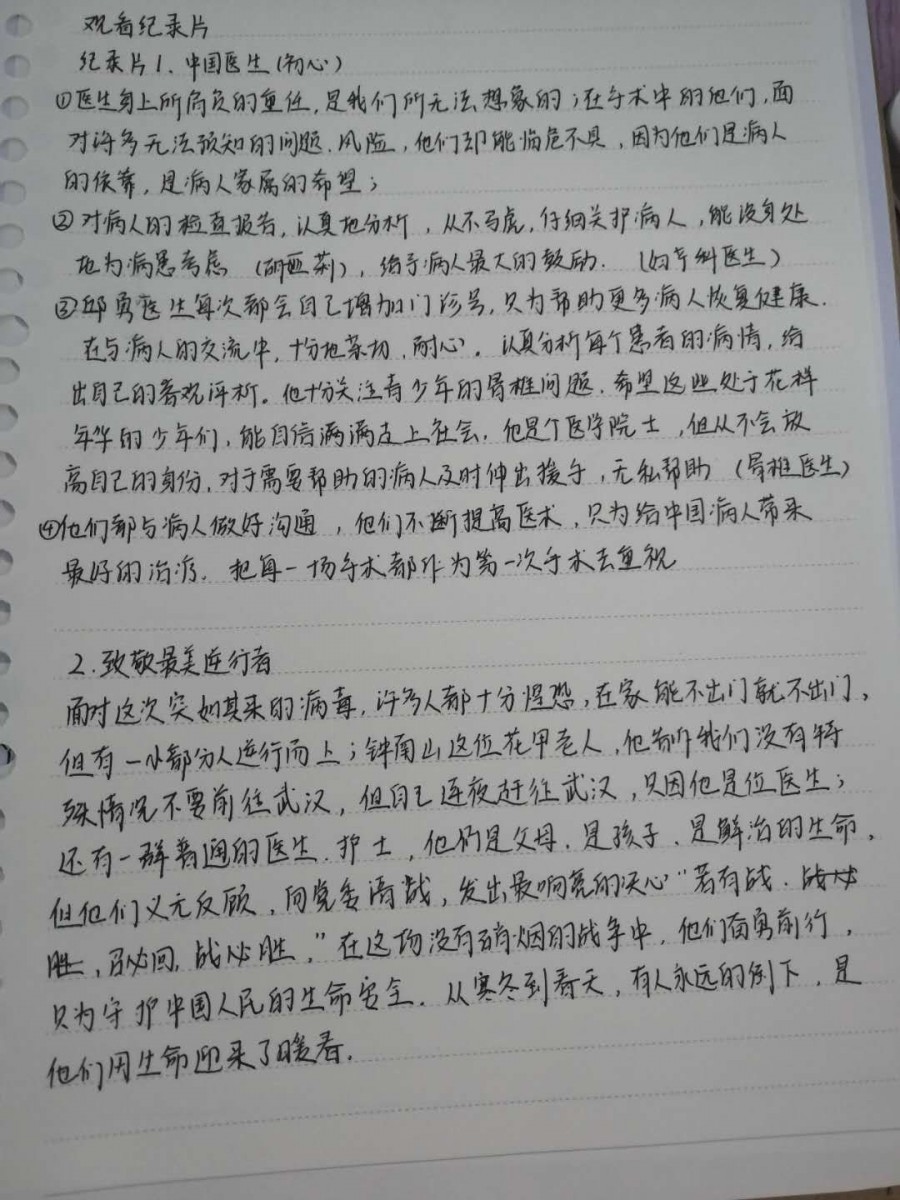 观看纪录片
纪录片1. 中国医生(初心)
①医生身上所肩负的重任,是我们所无法想象的;在手术中的他们,面
对许多无法预知的问题、风险,他们却能临危不具,因为他们是病人
的依靠,是病人家属的希望;
②对病人的检查报告,认真地分析,从不马虎,仔细关护病人,能设身处
地为病患考虑 (胡亚莉),给予病人最大的鼓励. (妇产科医生)
③邱勇医生每次都会自己增加门诊号,只为帮助更多病人恢复健康.
在与病人的交流中,十分地亲切、耐心。认真分析每个患者的病情,给
出自己的客观评析。他十分关注青少年的脊椎问题.希望这些处于花样
年华的少年们,能自信满满走上社会.他是个医学院士,但从不会放
高自己的身份,对于需要帮助的病人及时伸出援手,无私帮助 (脊椎医生)
④他们都与病人做好沟通,他们不断提高医术,只为给中国病人带来
最好的治疗. 把每一场手术都作为第一次手术去重视
2.致敬最美逆行者
面对这次突如其来的病毒,许多人都十分惶恐,在家能不出门就不出门,
但有一小部分人逆行而上;钟南山这位花甲老人,他制作我们没有特
殊情况不要前往武汉,但自己连夜赶往武汉,只因他是位医生;
还有一群普通的医生、护士,他们是父母、是孩子、是鲜活的生命,
但他们义无反顾,向党委请战,发出最响亮的决心“若有战.战必
胜,召必回,战必胜.”在这场没有硝烟的战争中,他们奋勇前行,
只为守护中国人民的生命安全.从寒冬到春天,有人永远的倒下,是
他们用生命迎来了暖春.